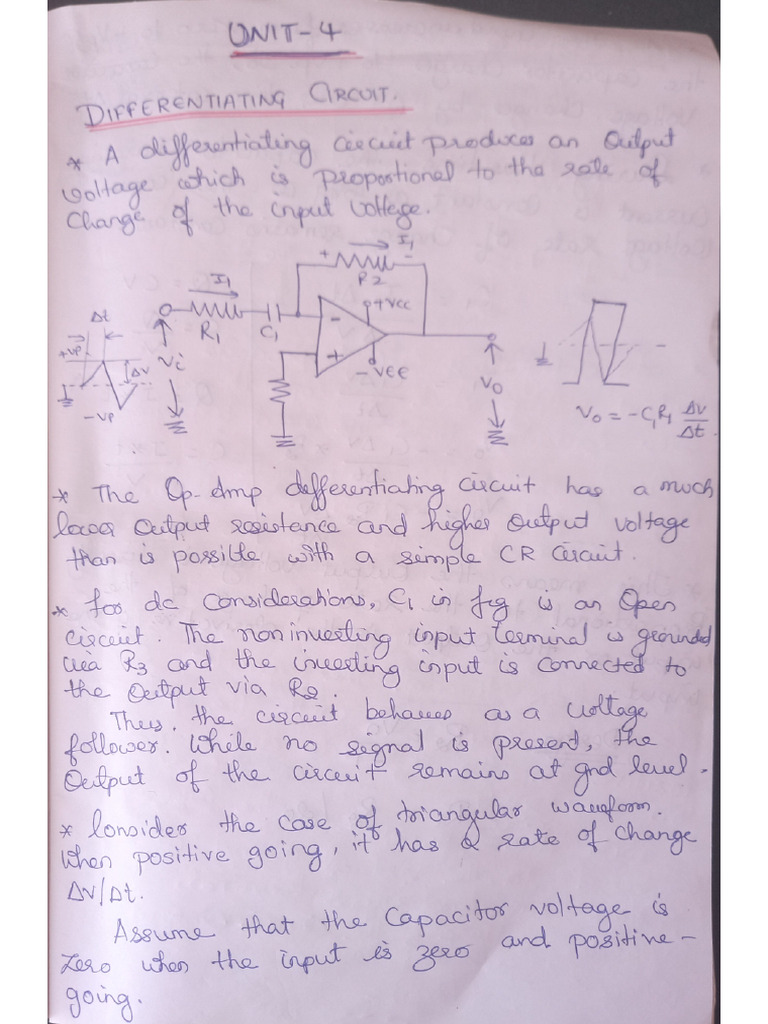 UNIT-4
DIFFERENTIATING CIRCUIT.
* A differentiating circuit produces an Output
voltage which is proportional to the rate of
Change of the input voltage.
I1
+ -
R2
I1
R1
C1
+VCC
-
+
-VEE
Δt
+VP
ΔV
-VP
Vi
Vo
Vo = -C1R1 ΔV/Δt.
* The Op-Amp differentiating circuit has a much
lower output resistance and higher output voltage
than is possible with a simple CR Circuit.
* for dc Considerations, C1 in fig is an Open
circuit. The noninverting input terminal is grounded
via R3 and the inverting input is connected to
the output via R2.
Thus, the circuit behaves as a voltage
follower. While no signal is present, the
Output of the circuit remains at gnd level.
* Consider the case of triangular waveform.
When positive going, it has a rate of change
ΔV/Δt.
Assume that the Capacitor voltage is
Zero when the input is zero and positive-
going.